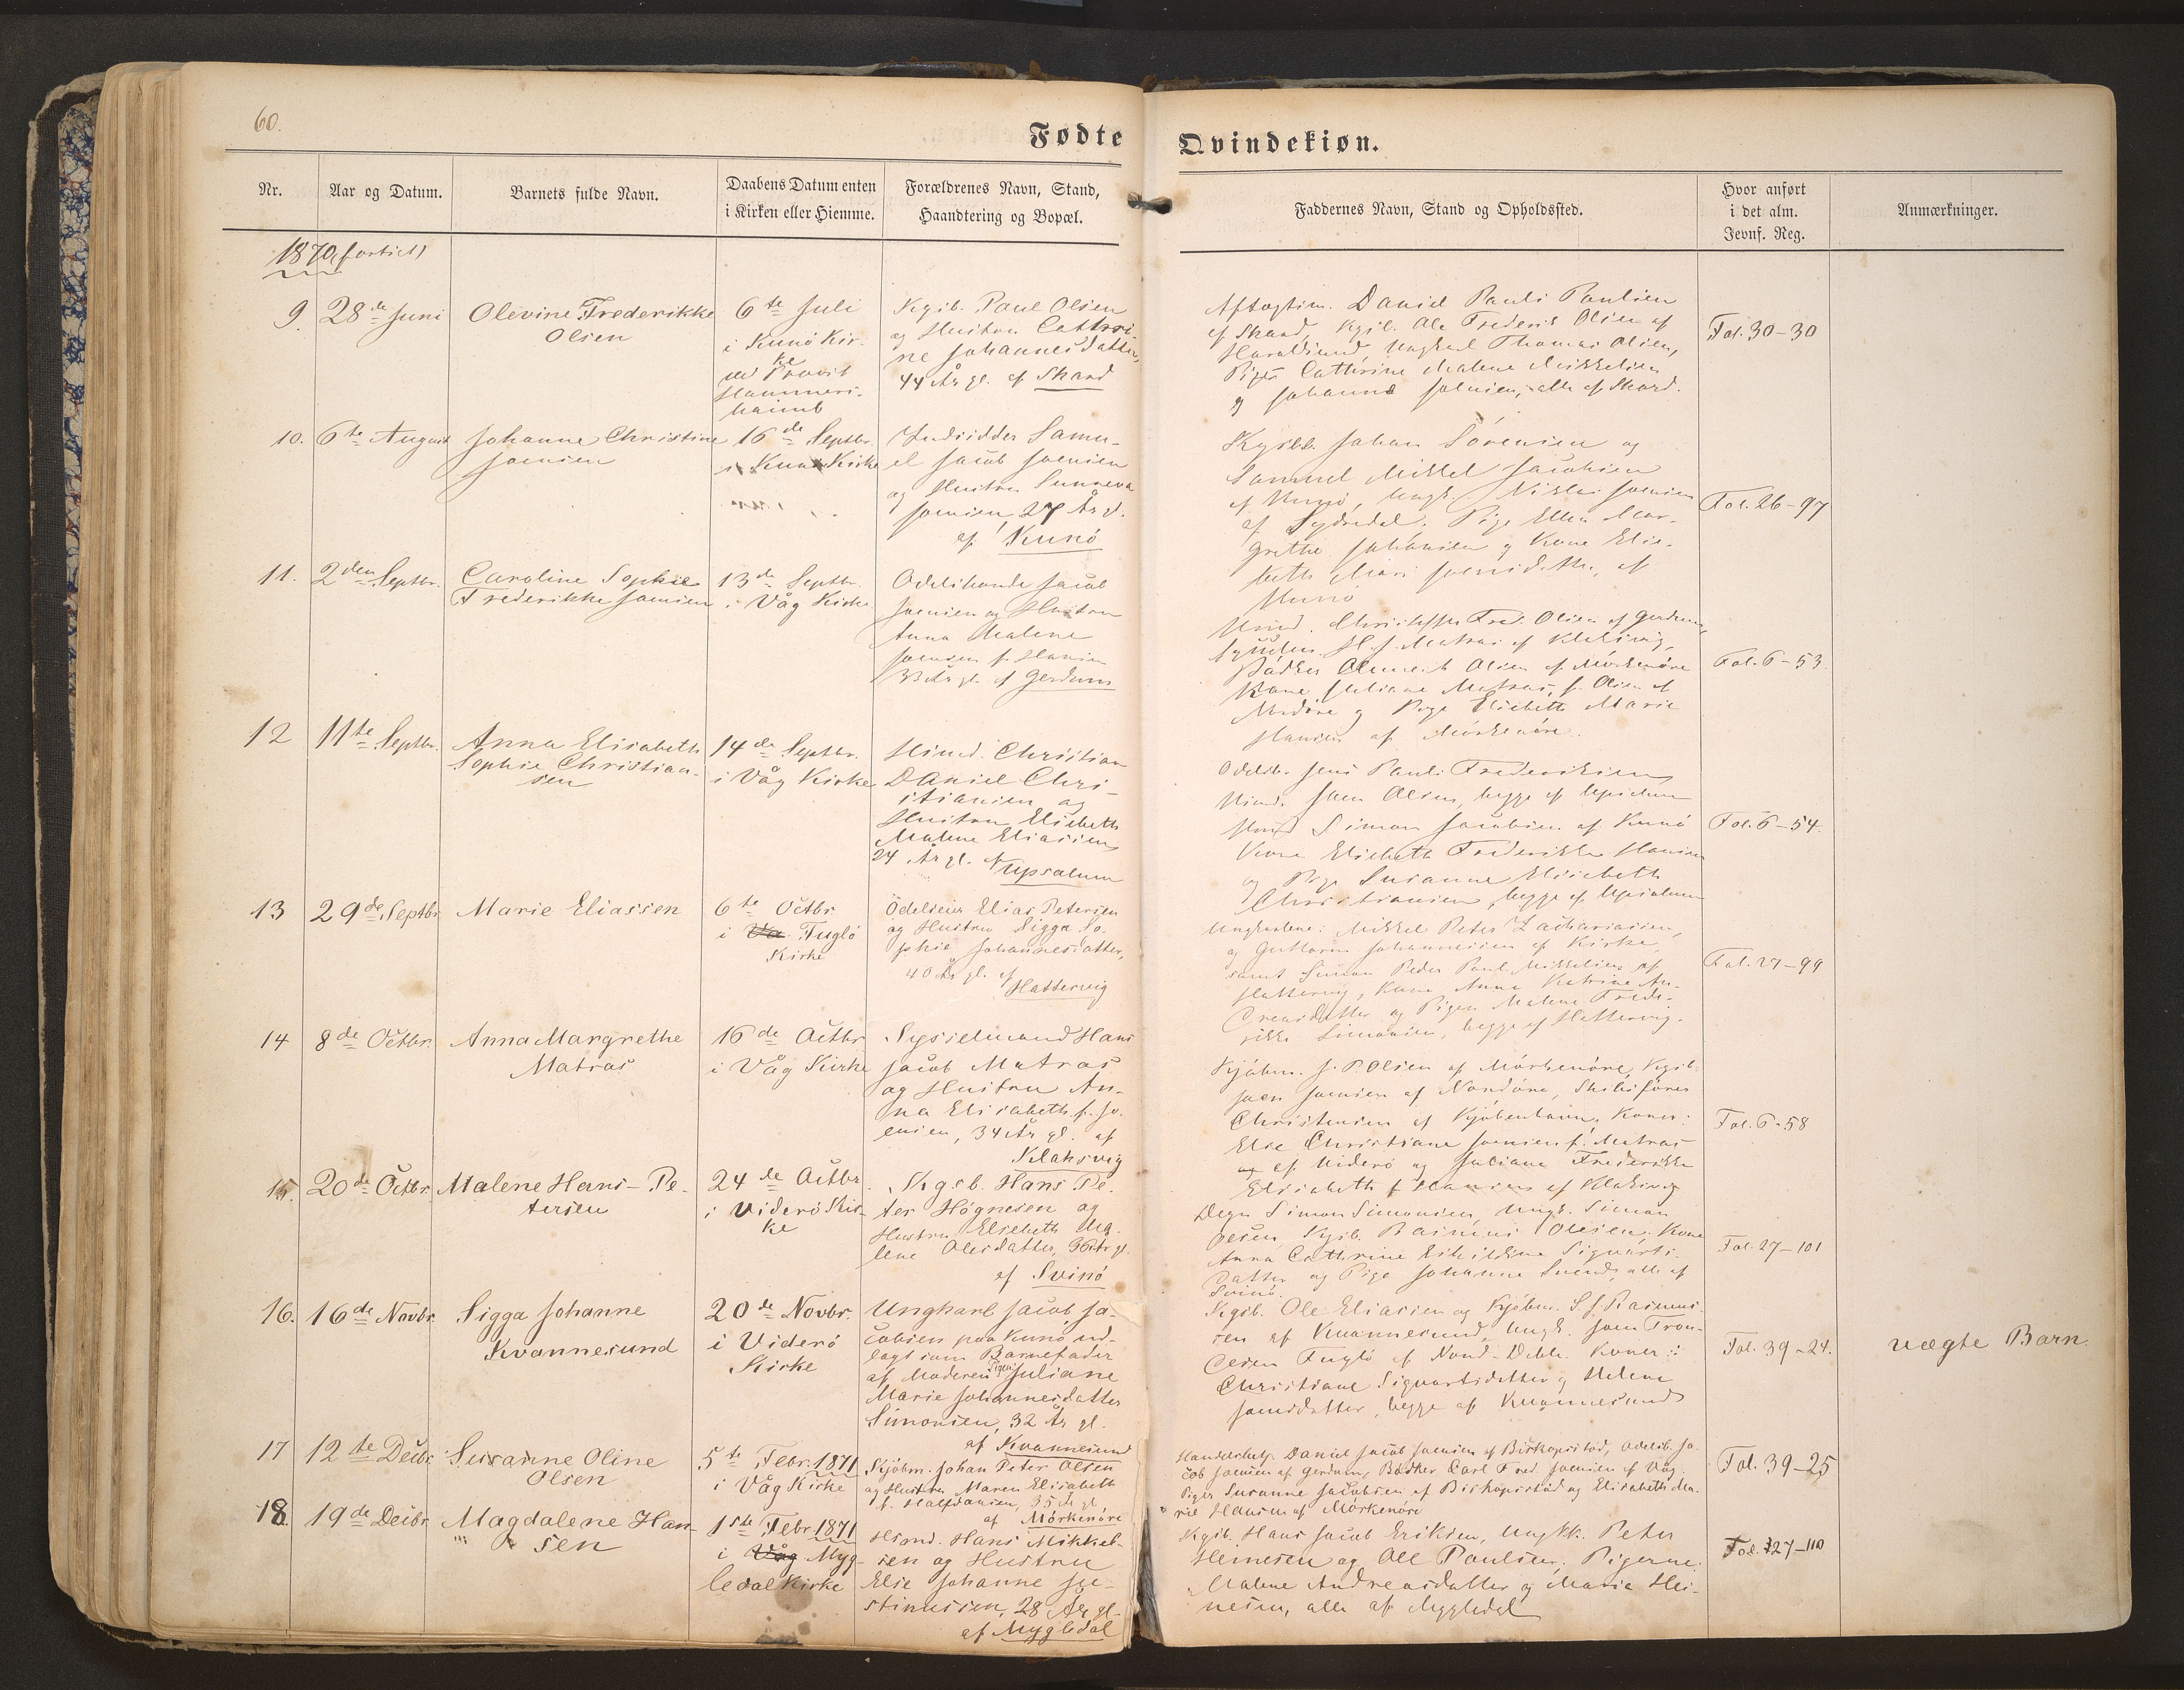 60.
Fødte
Qvindekiøn.
Nr.
Aar og Datum.
Barnets fulde Navn.
Daabens Datum enten
i Kirken eller Hiemme.
Forældrenes Navn, Stand,
Haandtering og Bopæl.
Faddernes Navn, Stand og Opholdssted.
Hvor anført
i det alm.
Jevnf. Reg.
Anmærkninger.
1870 (fortsat)
9. 28de Juni
Olevine Frederikke
Olsen
6te Juli
i Kunö Kir-
ke
ved Provst
Hammers-
haimb
Kgsb. Poul Olsen
og Hustru Cathri-
ne Johannesdatter,
44 År gl. af Skaard
Aftægtsm. Daniel Pauli Poulsen
af Skaard, Kgsb. Ole Frederik Olsen af
Haraldsund, Ungkarl Thomas Olsen,
Piger Cathrine Malene Mikkelsen
og Johanne Joensen, alle af Skaard.
Fol. 30-30
10. 6te August
Johanne Christine
Joensen
16de Septbr.
i Kunö Kirke
Indsidder Samu-
el Jacob Joensen
og Hustru Sunneva
Joensen, 27 År gl.
af Kunö
Kgsbb. Johan Sörensen og
Samuel Mikkel Jacobsen
af Kunö, Ungk. Niklas Joensen
af Sydredal. Pige Ellen Mar-
grethe Johansen og Kone Elsi-
beth Mari Joensdatter, af
Kunö
Fol. 26-97
11. 2den Septbr.
Caroline Sophie
Frederikke Joensen
13de Septbr.
i Våg Kirke
Odelsbonde Jacob
Joensen og Hustru
Anna Malene
Joensen f. Hansen
33 År gl. af Gerdum
Hmd. Christoffer Fred. Olsen af Gerdum,
Sysselm. H. J. Matras af Klaksvig,
Bödker Clement Olsen af Mörkenöre
Kone Juliane Matras, f. Olsen af
Nordöre og Pige Elsebeth Marie
Hansen af Mörkenöre.
Fol. 6-53.
12 11te Septbr.
Anna Elisabeth
Sophie Christian-
sen
14de Septbr.
i Våg Kirke
Hmd. Christian
Daniel Chri-
stiansen og
Hustru Elsebeth
Malene Eliasen
24 År gl. af
Upsalum
Odelsb. Jens Pauli Frederiksen
Hmd. Joen Olsen, begge af Upsalum
Hmd Simon Jacobsen af Kunö
Kone Elsebeth Frederikke Hansen
og Pige Susanne Elsebeth
Christiansen, begge af Upsalum
Fol. 6-54.
13 29de Septbr
Marie Eliassen
6te Octbr.
i Va Fuglö
Kirke
Odelseier Elias Petersen
og Hustru Sigga So-
phie Johannesdatter,
40 År gl. af
Hattervig
Ungkarlene: Mikkel Peter Zachariasen,
og Guttorm Johannesen af Kirke
samt Simon Peder Poul Mikkelsen af
Hattervig, Kone Anna Katrine An-
dreasdatter og Pigen Malene Frede-
rikke Simonsen, begge af Hattervig.
Fol. 27-99
14 8de Octbr.
Anna Margrethe
Matras
16de Octbr
i Våg Kirke
Sysselmand Hans
Jacob Matras
og Hustru An-
na Elisabeth f. Jo-
ensen, 34 År gl. af
Klaksvig
Kjöbm. J. P. Olsen af Mörkenöre, Kgsb.
Joen Joensen af Nordöre, Skibsförer
Christensen af Kjöbenhavn, Koner:
Else Christiane Joensen f. Matras
af Viderö og Juliane Frederikke
Elisabeth f Hansen af Klaksvig
Fol. 6-58
15. 20de Octbr.
Malene Hans-Pe-
tersen
24de Octbr.
i Viderö Kir-
ke
Kgsb. Hans Pe-
ter Högnesen og
Hustru Elsebeth Ma-
lene Olesdatter, 36 År gl.
af Svinö
Degn Simon Simonsen, Ungk. Simon
Kgsb. Rasmus Olesen, Kone
Anna Cathrine Sigvarts-
datter og Pige Johanne alle af
Svinö.
Fol. 27-101
16. 16de Novbr.
Sigga Johanne
Kvannesund
20de Novbr.
i Viderö
Kirke
Ungkarl Jacob Ja-
cobsen paa Kunö ud-
lagt som Barnefader
af Moderen Pigen Juliane
Marie Johannesdatter
Simonsen, 32 År gl.
af Kvannesund
Kgsb. Ole Eliasen og Kjöbm. S. J. Rasmus-
sen af Kvannesund, Ungk. Joen Tron-
desen Fuglö af Nord-Deble. Koner:
Christiane Sigvartsdatter og Helene
Joensdatter, begge af Kvannesund
Fol. 39-24.
uægte Barn.
17 12te Decbr.
Susanne Oline
Olsen
5te Febr. 1871
i Våg Kirke
Kjöbm. Johan Peter Olsen
og Hustru Maren Elisabeth
f. Halfdansen, 35 År gl
af Mörkenöre
Handelsbetj. Daniel Jacob Joensen af Biskopsstöd, Odelsb. Ja-
cob Joensen af Gerdum, Bödker Carl Fred. Joensen af Våg.
Piger Susanne Jacobsen af Biskopsstöd og Elisabeth Ma-
rie Hansen af Mörkenöre
Fol. 39-25
18. 19de Decbr
Magdalene Han-
sen
1ste Febr. 1871
i Våg Myg-
ledal Kirke
Hsmd. Hans Mikkel-
sen og Hustru
Else Johanne Ju-
stinussen, 28 År gl.
af Mygledal
Kgsb. Hans Jacob Eriksen, Ungkk. Peter
Heinesen og Ole Poulsen. Pigerne:
Malene Andreasdatter og Maria Hei-
nesen, alle af Mygledal
Fol. 27-110